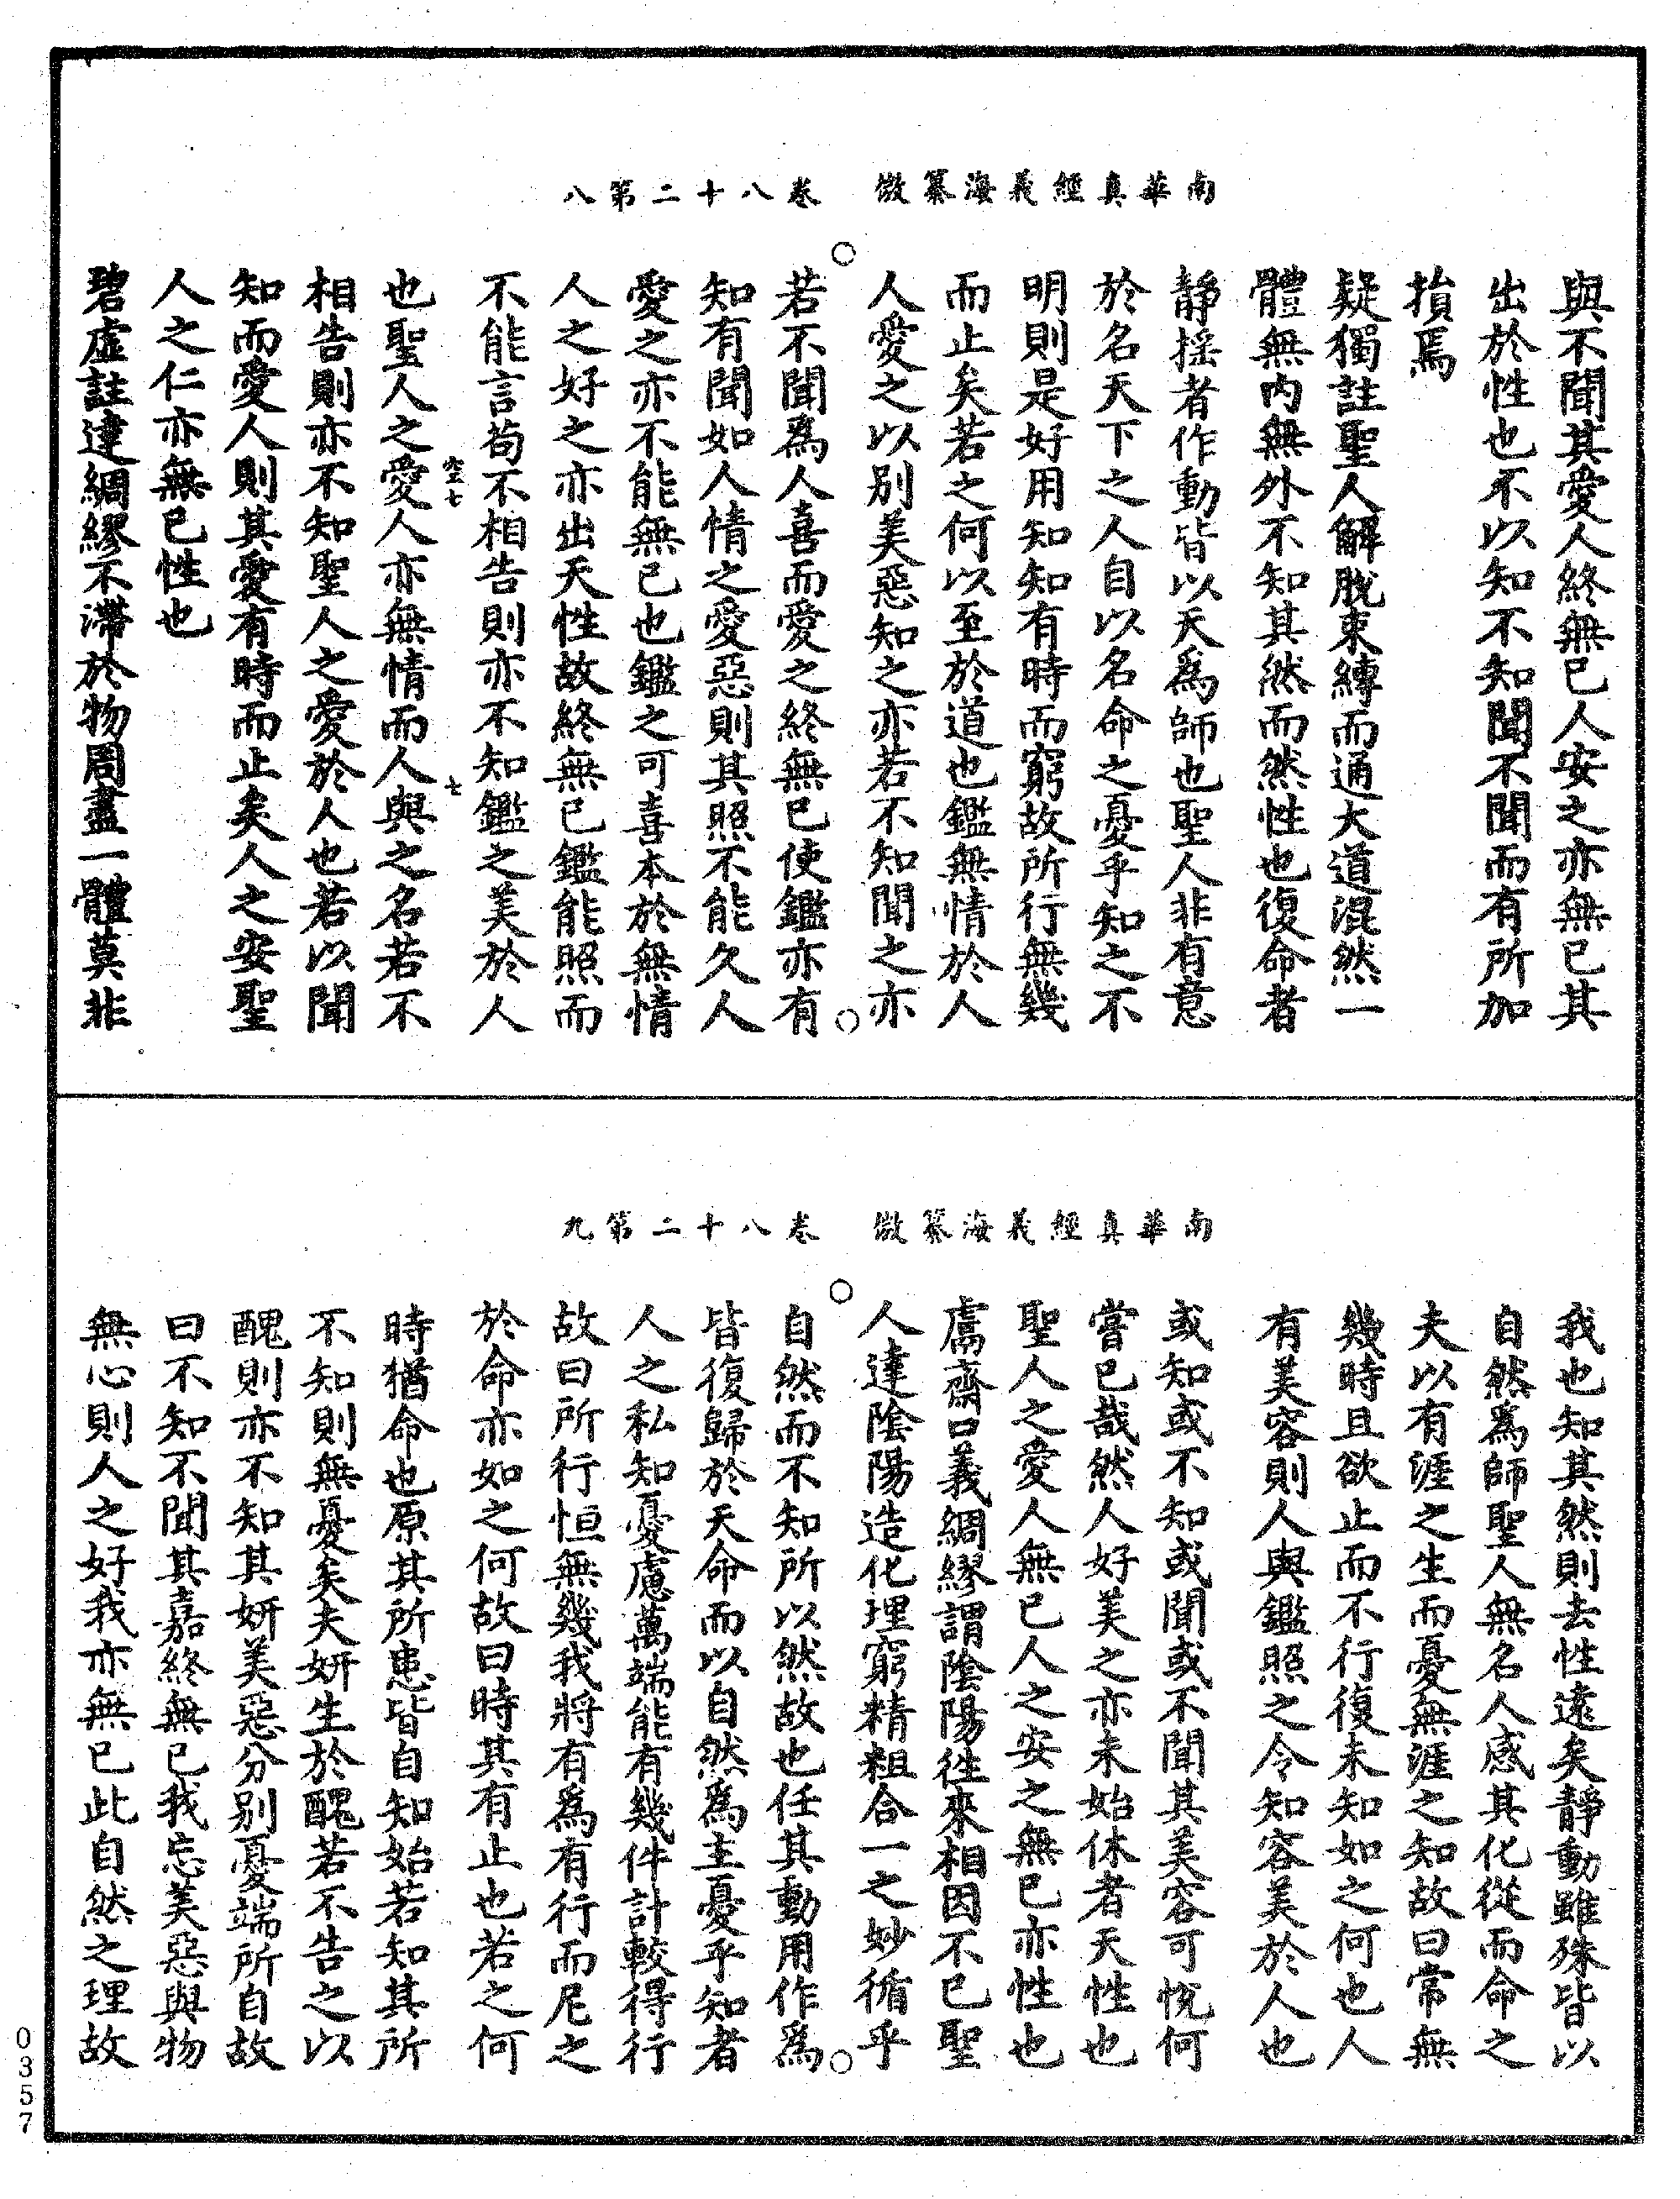 南華真經義海纂微　卷八十二第八
與不聞其愛人終無已人安之亦無已其
出於性也不以知不知聞不聞而有所加
損焉
疑獨註聖人解脫束縛而通大道混然一
體無內無外不知其然而然性也復命者
靜搖者作動皆以天為師也聖人非有意
於名天下之人自以名命之憂乎知之不
明則是好用知知有時而窮故所行無幾
而止矣若之何以至於道也鑑無情於人
人愛之以別美惡知之亦若不知聞之亦
若不聞為人喜而愛之終無已使鑑亦有
知有聞如人情之愛惡則其照不能久人
愛之亦不能無已也鑑之可喜本於無情
人之好之亦出天性故終無已鑑能照而
不能言苟不相告則亦不知鑑之美於人
空七　七
也聖人之愛人亦無情而人與之名若不
相告則亦不知聖人之愛於人也若以聞
知而愛人則其愛有時而止矣人之安聖
人之仁亦無已性也
碧虛註達綢繆不滯於物周盡一體莫非
南華真經義海纂微　卷八十二第九
我也知其然則去性遠矣靜動雖殊皆以
自然為師聖人無名人感其化從而命之
夫以有涯之生而憂無涯之知故曰常無
幾時且欲止而不行復未知如之何也人
有美容則人與鑑照之令知容美於人也
或知或不知或聞或不聞其美容可悅何
嘗已哉然人好美之亦未始休者天性也
聖人之愛人無已人之安之無已亦性也
鬳齋口義綢繆謂陰陽往來相因不已聖
人達陰陽造化理窮精粗合一之妙循乎
自然而不知所以然故也任其動用作為
皆復歸於天命而以自然為主憂乎知者
人之私知憂慮萬端能有幾件計較得行
故曰所行恒無幾我將有為有行而尼之
於命亦如之何故曰時其有止也若之何
時猶命也原其所患皆自知始若知其所
不知則無憂矣夫妍生於醜若不告之以
醜則亦不知其妍美惡分別憂端所自故
曰不知不聞其嘉終無已我忘美惡與物
無心則人之好我亦無已此自然之理故
0357